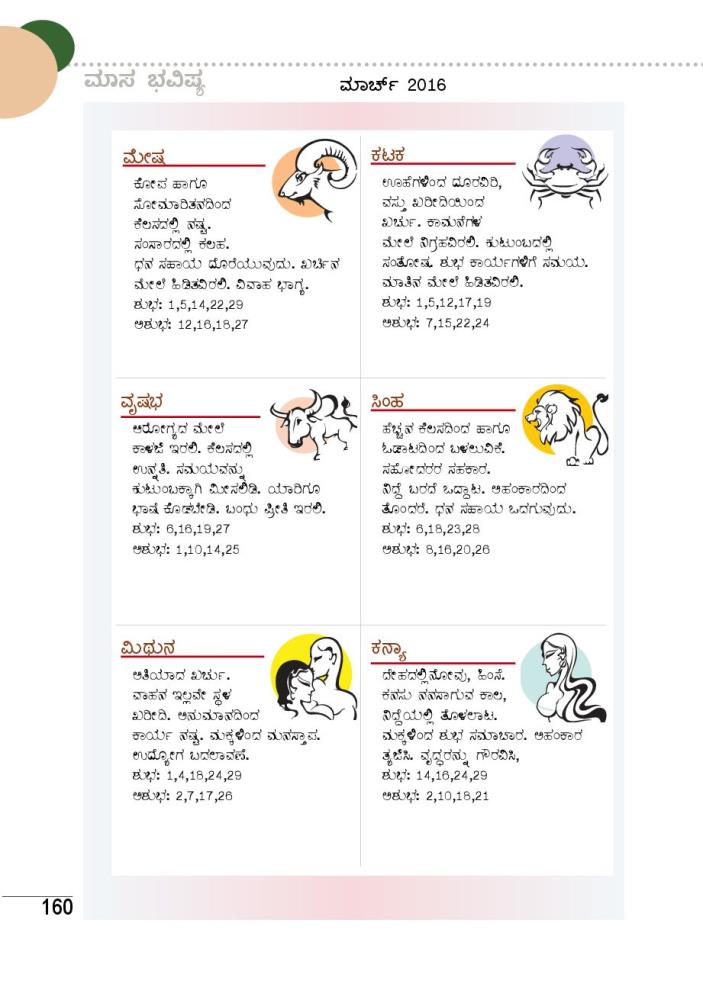 ಮಾಸ ಭವಿಷ್ಯ
ಮಾರ್ಚ್ 2016
ಮೇಷ
ಕೋಪ ಹಾಗೂ
ಸೋಮಾರಿತನದಿಂದ
ಕೆಲಸದಲ್ಲಿ ನಷ್ಟ.
ಸಂಸಾರದಲ್ಲಿ ಕಲಹ.
ಧನ ಸಹಾಯ ದೊರೆಯುವುದು. ಖರ್ಚಿನ
ಮೇಲೆ ಹಿಡಿತವಿರಲಿ. ವಿವಾಹ ಭಾಗ್ಯ.
ಶುಭ: 1,5,14,22,29
ಅಶುಭ: 12,16,18,27
ವೃಷಭ
ಆರೋಗ್ಯದ ಮೇಲೆ
ಕಾಳಜಿ ಇರಲಿ. ಕೆಲಸದಲ್ಲಿ
ಉನ್ನತಿ. ಸಮಯವನ್ನು
ಕುಟುಂಬಕ್ಕಾಗಿ ಮೀಸಲಿಡಿ. ಯಾರಿಗೂ
ಭಾಷೆ ಕೊಡಬೇಡಿ. ಬಂಧು ಪ್ರೀತಿ ಇರಲಿ.
ಶುಭ: 6,16,19,27
ಅಶುಭ: 1,10,14,25
ಮಿಥುನ
ಅತಿಯಾದ ಖರ್ಚು.
ವಾಹನ ಇಲ್ಲವೇ ಸ್ಥಳ
ಖರೀದಿ. ಅನುಮಾನದಿಂದ
ಕಾರ್ಯ ನಷ್ಟ. ಮಕ್ಕಳಿಂದ ಮನಸ್ತಾಪ.
ಉದ್ಯೋಗ ಬದಲಾವಣೆ.
ಶುಭ: 1,4,18,24,29
ಅಶುಭ: 2,7,17,26
ಕಟಕ
ಊಹೆಗಳಿಂದ ದೂರವಿರಿ,
ವಸ್ತು ಖರೀದಿಯಿಂದ
ಖರ್ಚು. ಕಾಮನೆಗಳ
ಮೇಲೆ ನಿಗ್ರಹವಿರಲಿ. ಕುಟುಂಬದಲ್ಲಿ
ಸಂತೋಷ. ಶುಭ ಕಾರ್ಯಗಳಿಗೆ ಸಮಯ.
ಮಾತಿನ ಮೇಲೆ ಹಿಡಿತವಿರಲಿ.
ಶುಭ: 1,5,12,17,19
ಅಶುಭ: 7,15,22,24
ಸಿಂಹ
ಹೆಚ್ಚಿನ ಕೆಲಸದಿಂದ ಹಾಗೂ
ಓಡಾಟದಿಂದ ಬಳಲುವಿಕೆ.
ಸಹೋದರರ ಸಹಕಾರ.
ನಿದ್ದೆ ಬರದೆ ಒದ್ದಾಟ. ಅಹಂಕಾರದಿಂದ
ತೊಂದರೆ. ಧನ ಸಹಾಯ ಒದಗುವುದು.
ಶುಭ: 6,18,23,28
ಅಶುಭ: 8,16,20,26
ಕನ್ಯಾ
ದೇಹದಲ್ಲಿ ನೋವು, ಹಿಂಸೆ.
ಕನಸು ನನಸಾಗುವ ಕಾಲ,
ನಿದ್ದೆಯಲ್ಲಿ ತೊಳಲಾಟ.
ಮಕ್ಕಳಿಂದ ಶುಭ ಸಮಾಚಾರ. ಅಹಂಕಾರ
ತ್ಯಜಿಸಿ. ವೃದ್ಧರನ್ನು ಗೌರವಿಸಿ,
ಶುಭ: 14,16,24,29
ಅಶುಭ: 2,10,18,21
160